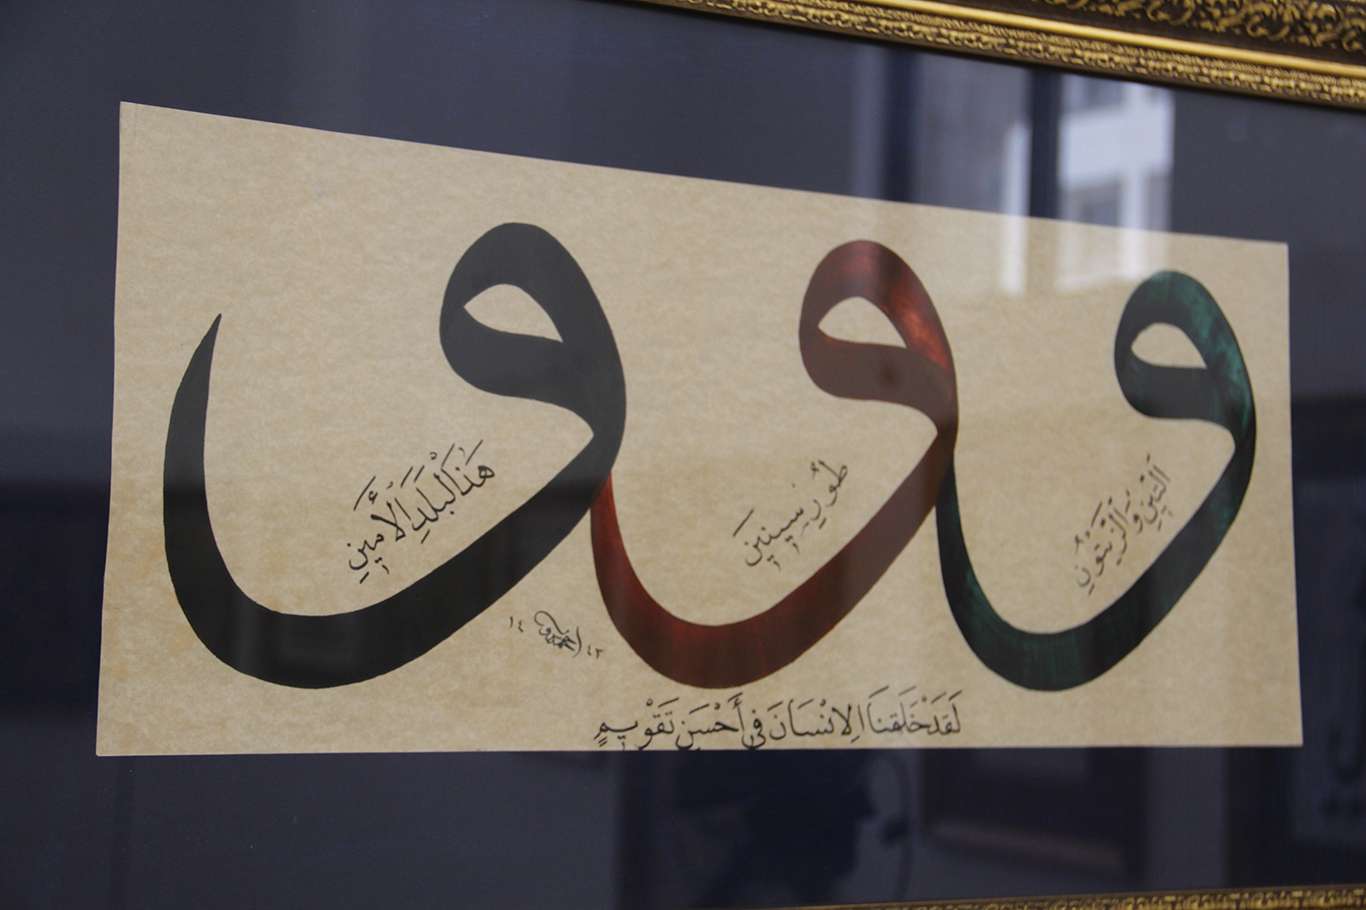 و التِّينِ وَالزَّيْتُونِ
و طُورِ سِينِينَ
و هٰذَا الْبَلَدِ الْأَمِينِ
١٤ ٤٢
لَقَدْ خَلَقْنَا الْإِنْسَانَ فِي أَحْسَنِ تَقْوِيمٍ